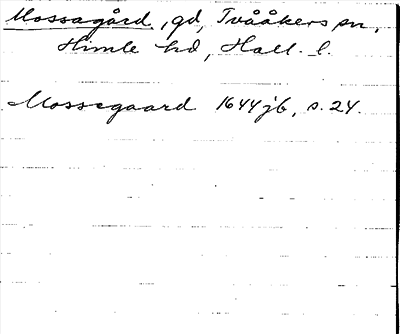 Mossagård, gd, Tvååkers sn,
Himle hd, Hall. l.
Mossegaard 1644 jb, s. 24.